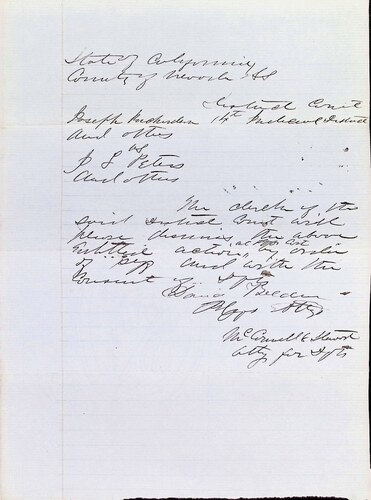 State of California
County of Nevada SS
District Court
Joseph 14th Judicial District
and others
vs
P L Peters
and others
The clerk of the
said District Court will
please dismiss the above
Entitled action, by order
of Plff and with the
Consent of Dft
David Belden
Plffs Atty
McConnell &
Atty for Dfts